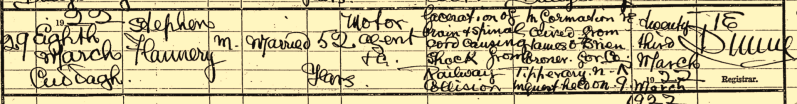 29
1922
Eighth
March
Cuddagh
Stephen
Flannery
M.
Married
52
Years
Motor
agent
&c.
Laceration of
brain & spinal
cord causing
shock from
Railway
Collision
Information re
ceived from
James O'Brien
Coroner for Co.
Tipperary N.R
Inquest held on 9
March
1922
Twenty
third
March
1922
Registrar.